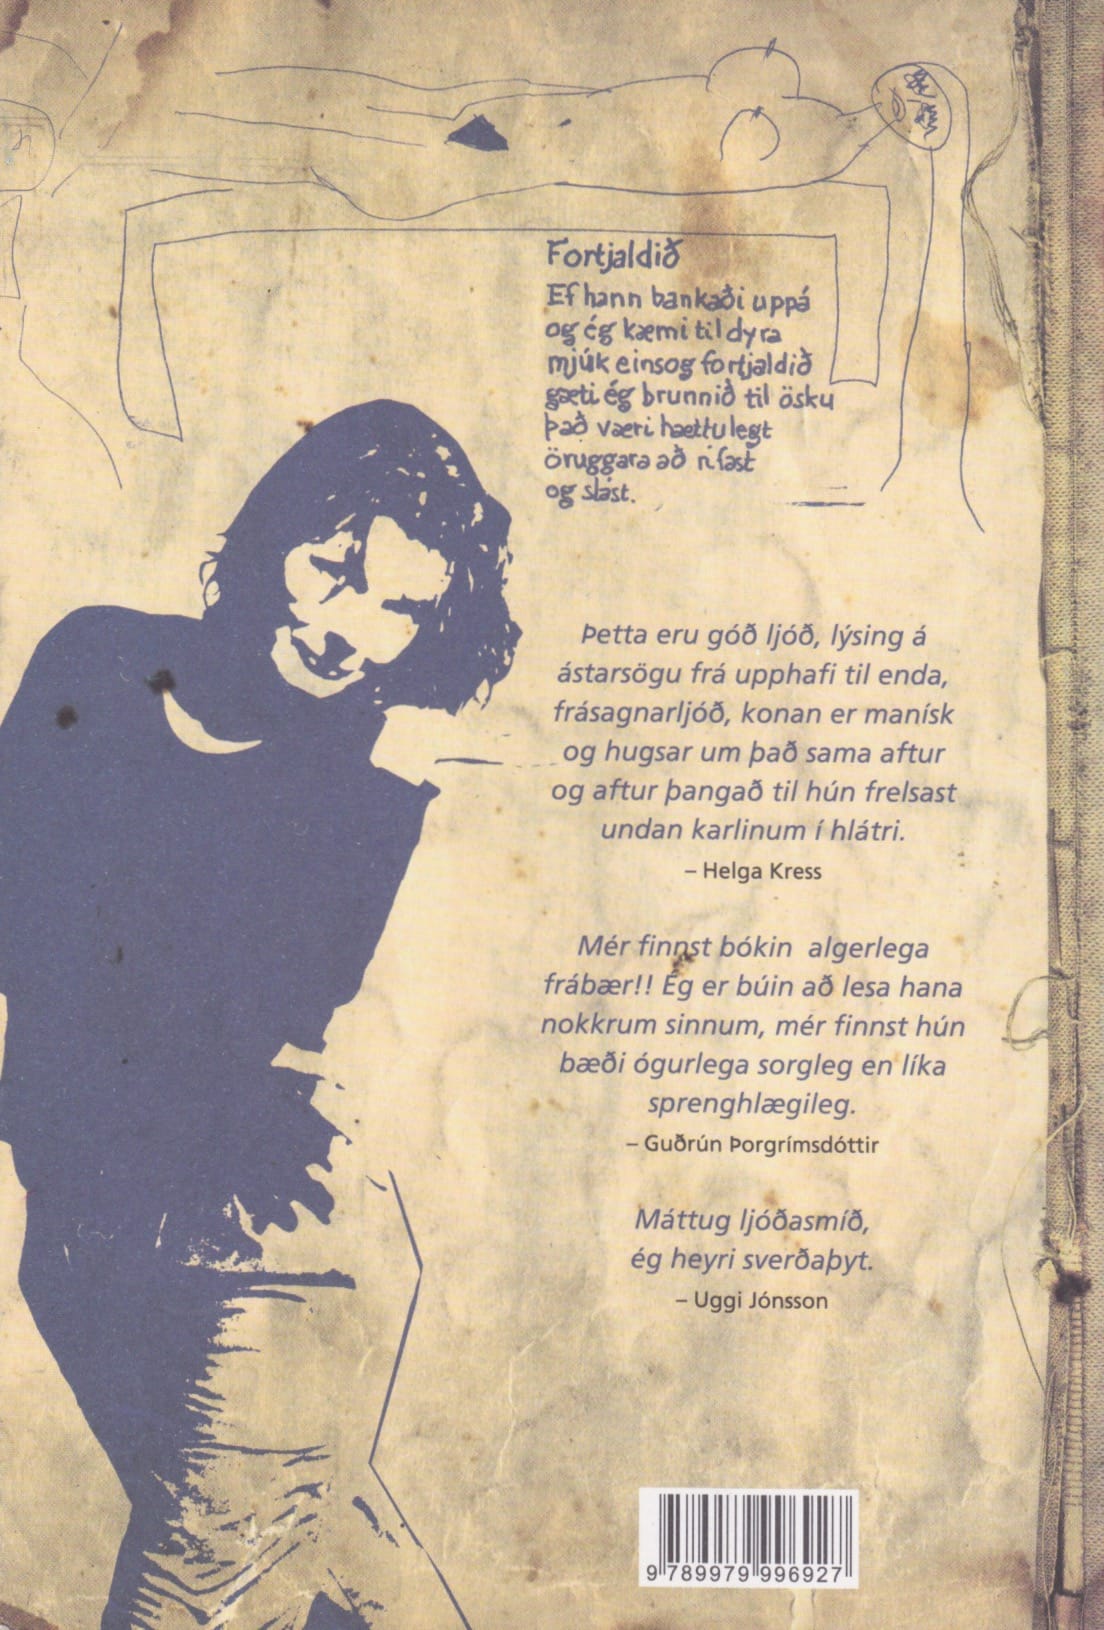 Fortjaldið
Ef hann bankaði uppá
og ég kæmi til dyra
mjúk einsog fortjaldið
gæti ég brunnið til ösku
það væri hættulegt
öruggara að rífast
og slást.
Þetta eru góð ljóð, lýsing á
ástarsögu frá upphafi til enda,
frásagnarljóð, konan er manísk
og hugsar um það sama aftur
og aftur þangað til hún frelsast
undan karlinum í hlátri.
– Helga Kress
Mér finnst bókin algerlega
frábær!! Ég er búin að lesa hana
nokkrum sinnum, mér finnst hún
bæði ógurlega sorgleg en líka
sprenghlægileg.
– Guðrún Þorgrímsdóttir
Máttug ljóðasmíð,
ég heyri sverðaþyt.
– Uggi Jónsson
9 789979 996927